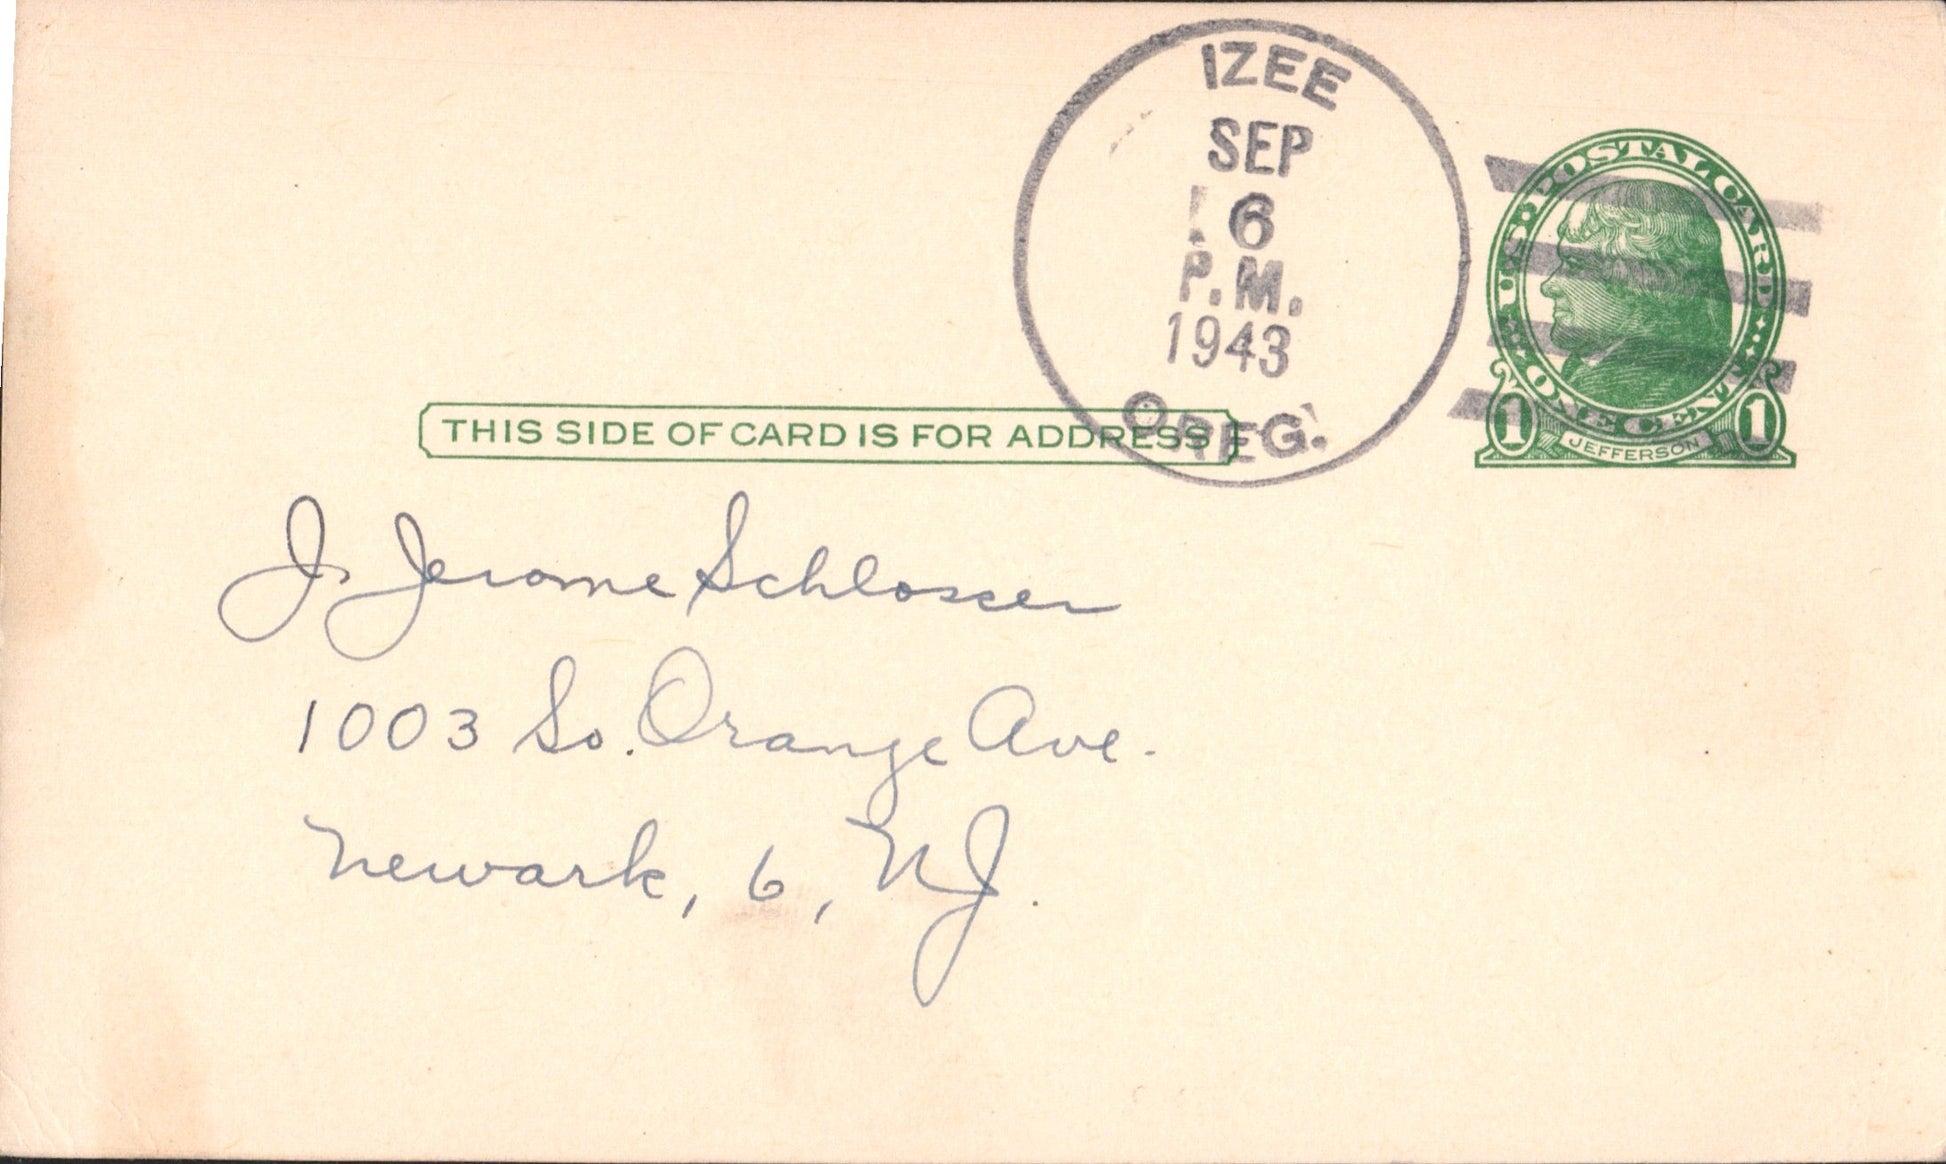 IZEE
SEP
6
P.M.
1943
OREG.
U.S. POSTAL CARD
ONE CENT
1 JEFFERSON 1
THIS SIDE OF CARD IS FOR ADDRESS
J. Jerome Schlosser
1003 So. Orange Ave.
Newark, 6, NJ.